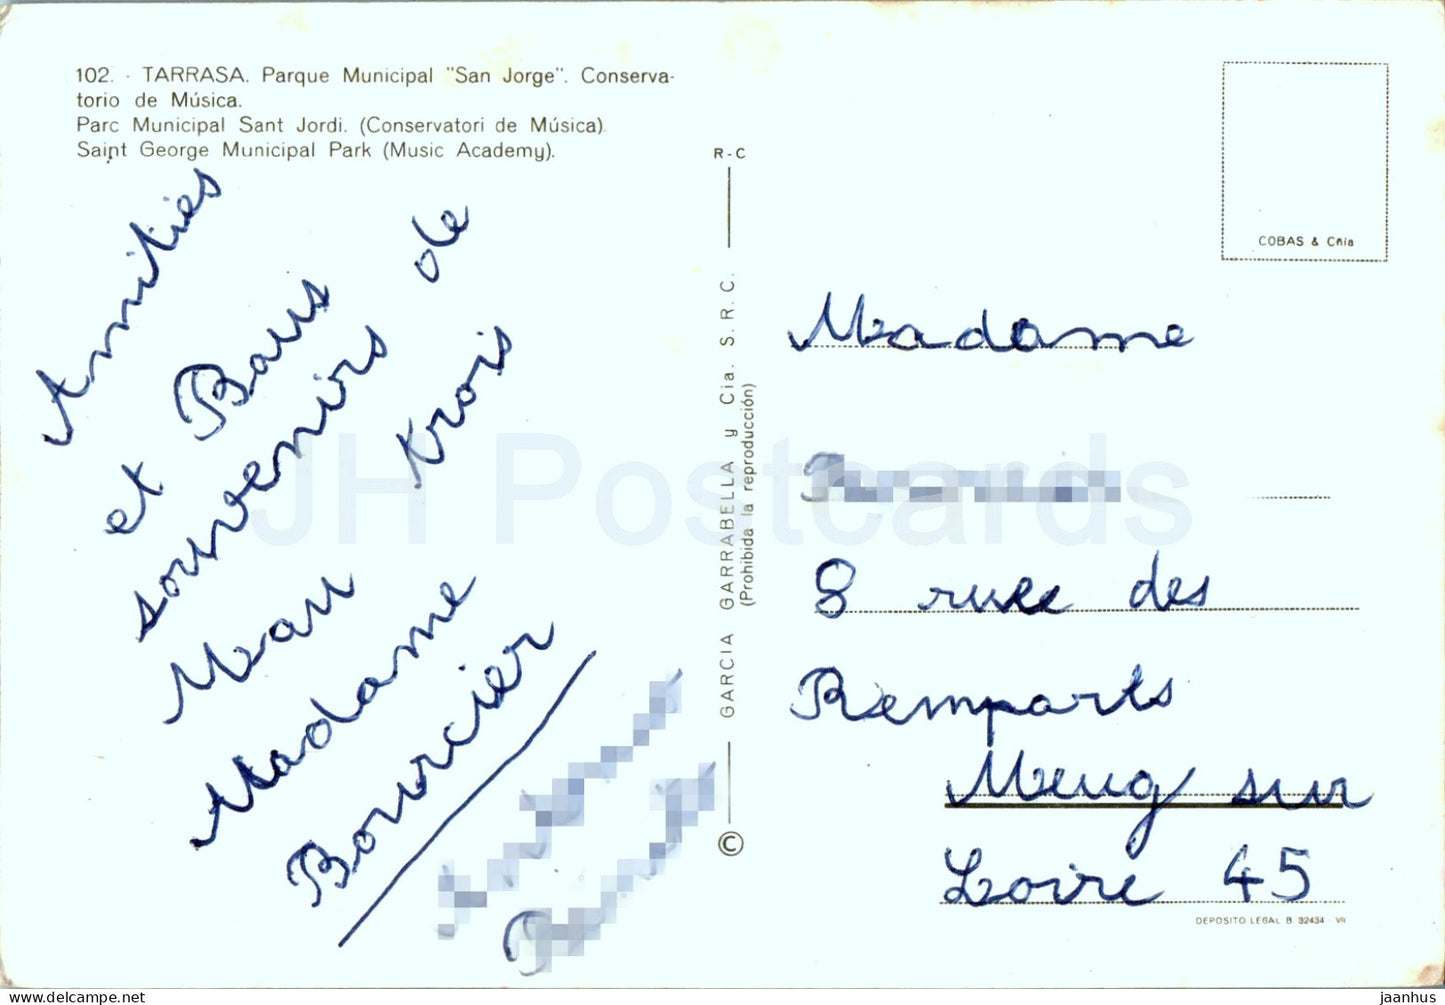 102. - TARRASA. Parque Municipal "San Jorge". Conserva-
torio de Música.
Parc Municipal Sant Jordi. (Conservatori de Música).
Saint George Municipal Park (Music Academy).
R-C
COBAS & Cñía
GARCIA GARRABELLA y Cia. S.R.C.
(Prohibida la reproducción)
©
Amities
et Bons
souvenirs de
trois
Madame
Bourcier
Madame
8 rue des
Remparts
Meug sur
Loire 45
DEPOSITO LEGAL B. 32434 - VII
JH Postcards
www.delcampe.net
jaanhus